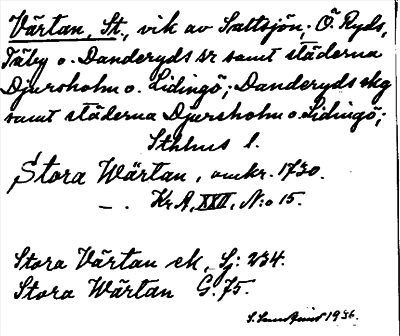 Värtan, St., vik av Saltsjön; Ö. Ryds,
Täby o. Danderyds sr samt städerna
Djursholm o. Lidingö; Danderyds skg
samt städerna Djursholm o. Lidingö;
Sthlms l.
Stora Wärtan, omkr. 1730.
—. Kr A, XXII, N:o 15.
Stora Värtan ek, Sj: 234.
Stora Wärtan G. 75.
1936.